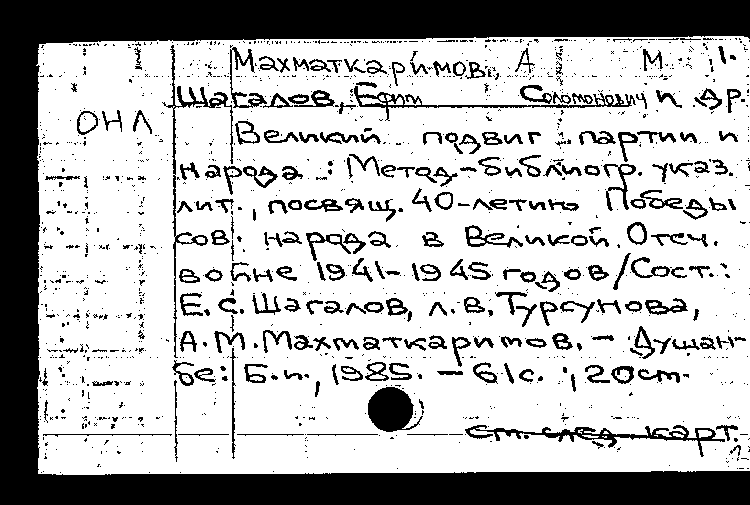 Махматкаримов, А М 1.
Шагалов, Ефим Соломонович и др.
ОНЛ
Великий подвиг партии и
народа : Метод.-библиогр. указ.
лит., посвящ. 40-летию Победы
сов. народа в Великой Отеч.
войне 1941-1945 годов/Сост.:
Е.С.Шагалов, Л.В.Турсунова,
А.М.Махматкаримов. - Душан-
бе: Б.и., 1985. - 61с. ; 20см.
см. след. карт.